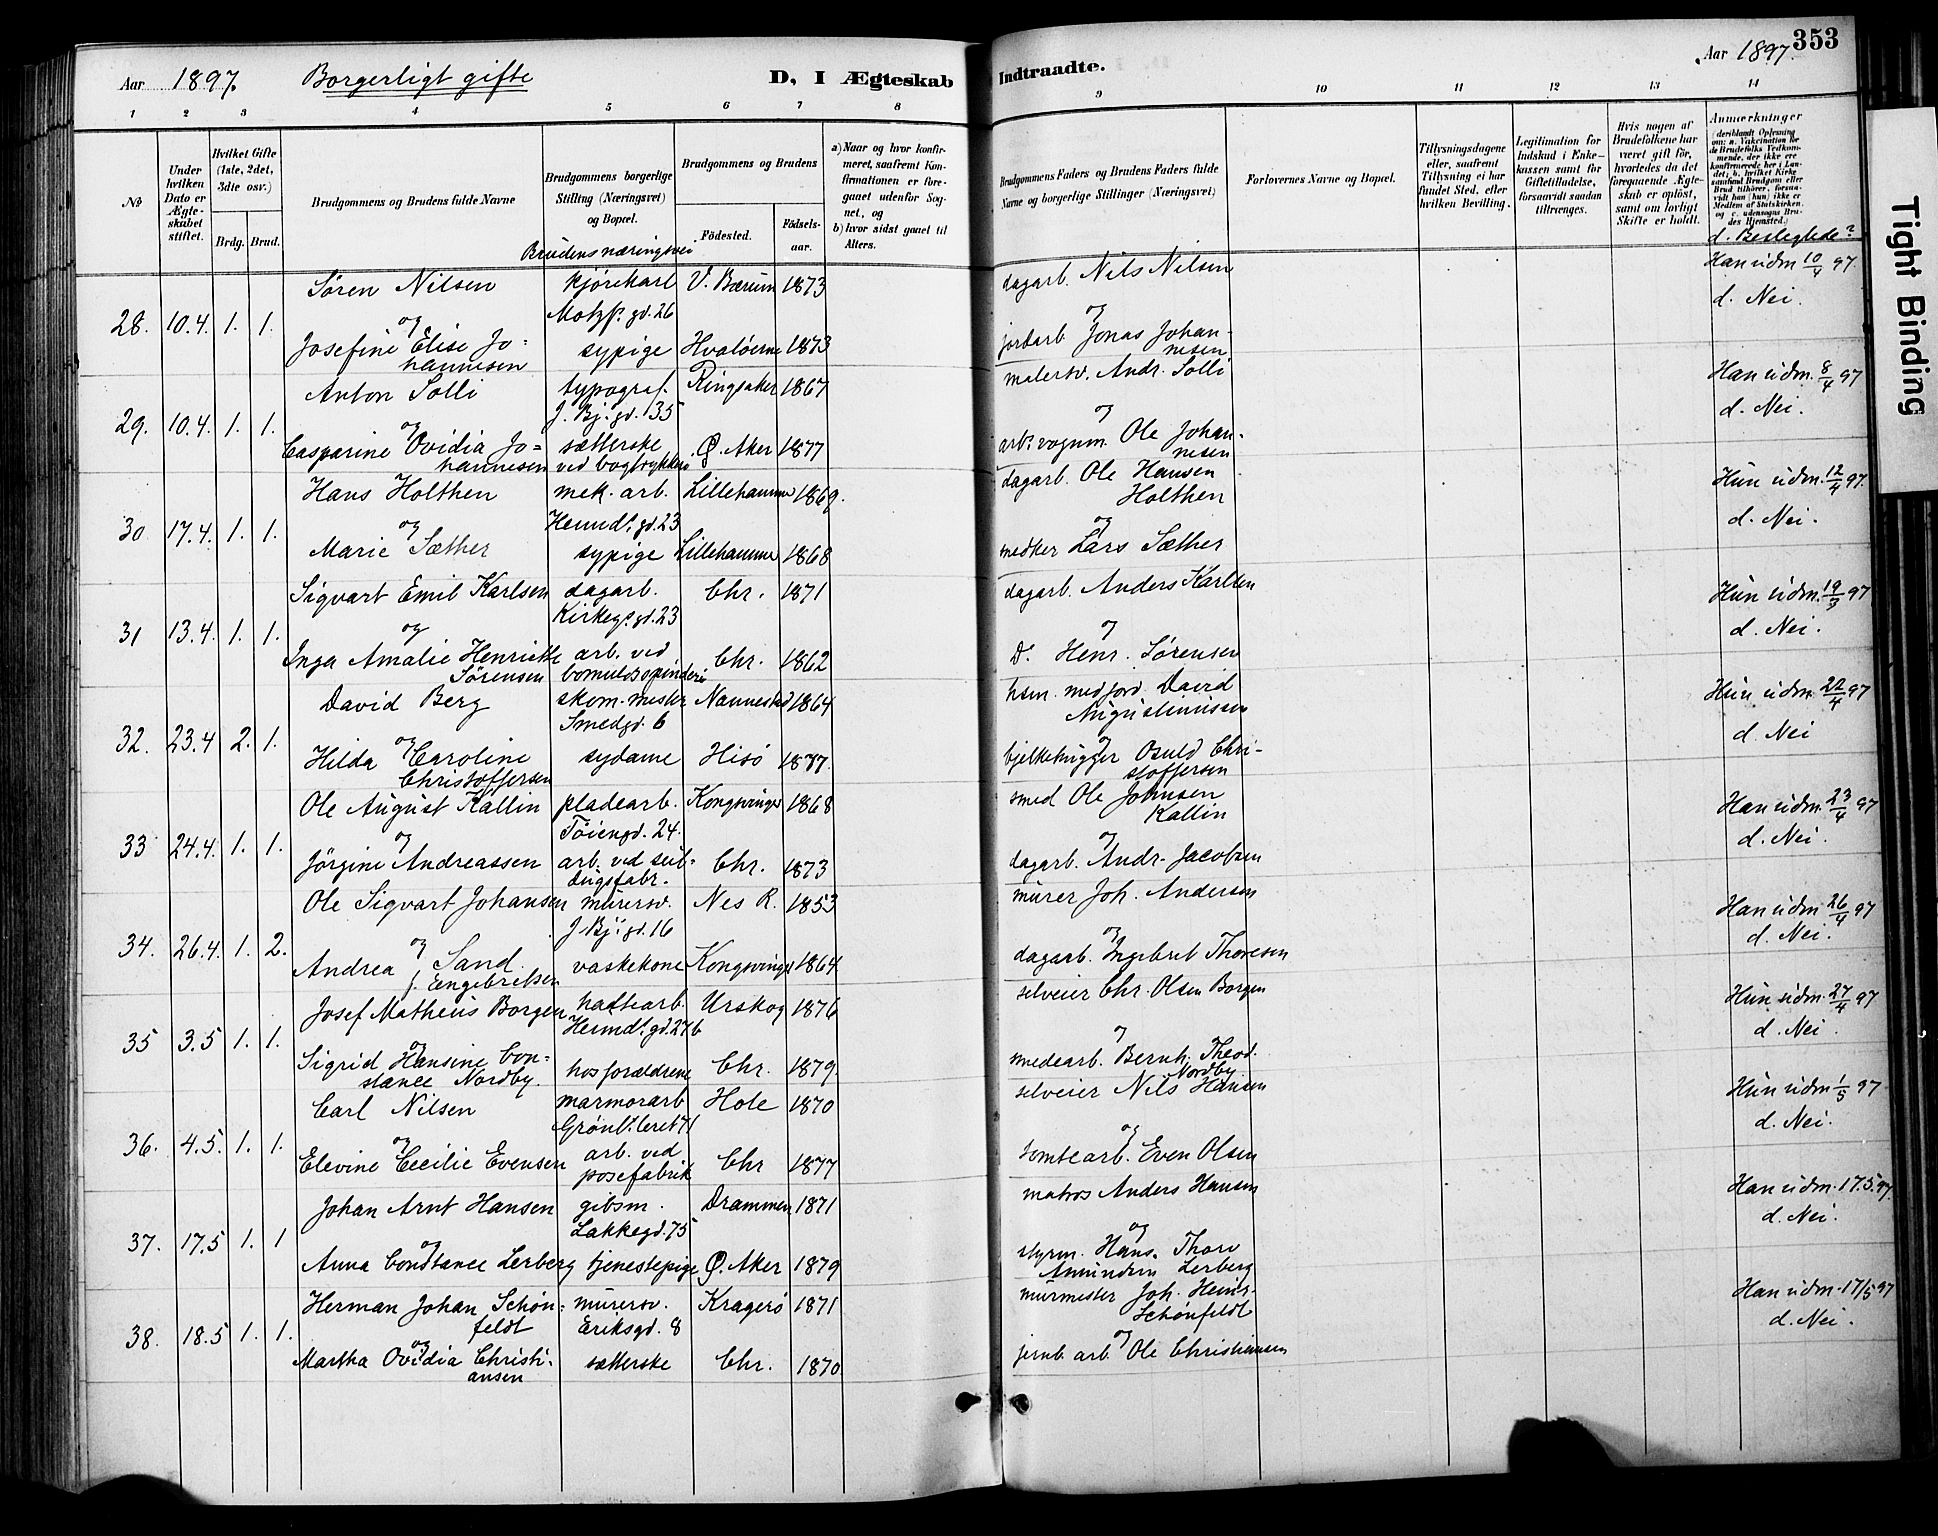 Aar 1897. Borgerligt gifte D, I Ægteskab
1 2 3 4 5 6 7 8
No
Under hvilken Dato er Ægteskabet stiftet.
Hvilket Gifte (1ste, 2det, 3die osv.)
Brdg. Brud.
Brudgommens og Brudens fulde Navne
Brudgommens borgerlige Stilling (Næringsvei) og Bopæl.
Brudens næringsvei
Brudgommens og Brudens
Födested. Födselsaar.
a) Naar og hvor konfirmeret, saafremt Konfirmationen er foregaaet udenfor Sognet, og
b) hvor sidst gaaet til Alters.
Søren Nilsen kjørekarl V. Bærum 1873
28. 10.4. 1. 1. og Motzf. gd. 26
Josefine Elise Jo= sypige Hvaløerne 1873
hannesen
Anton Solli typograf. Ringsaker 1867
J. Bj. gd. 135
29. 10.4. 1. 1. og
Casparine Ovidia Jo= sætterske Ø. Aker 1877
hannesen ved bogtrykkeri
Hans Holthen mek. arb. Lillehammer 1869.
30 17.4. 1. 1. og Hemd. gd. 23
Marie Sæther sypige Lillehammer 1868
Sigvart Emil Karlsen dagarb. Chr. 1871
Kirkeg. gd. 23
31 13.4. 1. 1. og
Inga Amalie Henriette arb. ved Chr. 1862
Sørensen bomuldsspinderi
David Berg skom. mester Nannestad 1864
Smedgd. 6
32. 23.4 2. 1. og
Hilda Caroline sydame Hisø 1877.
Christoffersen
Ole August Kallin pladearb. Kongsvinger 1868
Tøiengd. 24.
33 24.4. 1. 1. og
Jørgine Andreassen arb. ved seil- Chr. 1873
dugsfabr.
Ole Sigvart Johansen murersv. Nes R. 1853
J. Bj. gd. 16
34. 26.4. 1. 2. og
Andrea Sand vaskekone Kongsvinger 1864
f. Engebretsen
Josef Matheus Borgen hattearb. Urskog 1876
Hermd. gd. 27 b
35 3.5 1. 1. og
Sigrid Hansine Con= hos forældrene Chr. 1879.
stance Nordby.
Carl Nilsen marmorarb Hole 1870
Grønl. leret 71
36. 4.5. 1. 1. og
Elevine Cecilie Evensen arb. ved Chr 1877
posefabrik
Johan Arnt Hansen gibsm. Drammen 1871
Lakkegd. 75
37. 17.5 1. 1 og
Anna Constance Lerberg tjenestepige Ø. Aker 1879
Herman Johan Schön= murersv. Kragerø 1871
feldt Eriksgd. 8
38. 18.5 1. 1. og
Martha Ovidia Christi- sætterske Chr. 1870
ansen
Indtraadte. Aar 1897. 353
9 10 11 12 13 14
Brudgommens Faders og Brudens Faders fulde Navne og borgerlige Stillinger (Næringsvei)
Forlovernes Navne og Bopæl.
Tillysningsdagene eller, saafremt Tillysning ei har fundet Sted, efter hvilken Bevilling.
Legitimation for Indskud i Enkekassen samt for Giftetilladelse, forsaavidt saadan tiltrænges.
Hvis nogen af Brudefolkene har været gift för, hvorledes da det foregaaende Ægteskab er oplöst, samt om lovligt Skifte er holdt.
Anmerkninger
(deriblandt Oplysning om: a. Vaccination for de Brudefolks Vedkommende, der ikke ere konfirmerede her i Landet; b. hvilket Kirkesamfund Brudgom eller Brud tilhörer, forsaavidt han (hun) ikke er Medlem af Statskirken, og c. udensogns Brudes Hjemsted.)
d. Beslegtede?
dagarb. Nils Nilsen Han udm 10/4 97.
og d. Nei.
jordarb. Jonas Johan-
nesen
malersv. Andr. Solli Han udm. 8/4 97
og d. Nei.
arb. vognm. Ole Johan-
nesen
dagarb. Ole Hansen Hun udm. 12/4 97.
Holthen d. Nei.
og
Lars Sæther
dagarb. Anders Karlsen Hun udm. 19/3 97
og d. Nei.
D. Henr. Sørensen
hsm. med jord. David Hun udm. 22/4 97
Augustinussen d. Nei
og
bjelkehugger Osuld Chri-
stoffersen
smed Ole Johnsen Han udm. 23/4 97
Kallin d. Nei.
og
dagarb. Andr. Jacobsen
murer Joh. Andersen Han udm 26/4 97
og d. Nei.
dagarb. Ingebret Thoresen
selveier Chr. Olsen Borgen Hun udm. 27/4 97
og d. Nei.
smedearb. Bernh. Theod.
Nordby.
selveier Nils Hansen Hun udm 1/5 97
og d. Nei.
tomtearb. Even Olsen
matros Anders Hansen Han udm. 17.5.97
og d. Nei.
styrm. Hans. Thorv
Amundsen Lerberg
murmester Joh. Heinr. Han udm. 17/5 97
Schönfeldt d. Nei.
og
jernb. arb. Ole Christiansen
Tight Binding